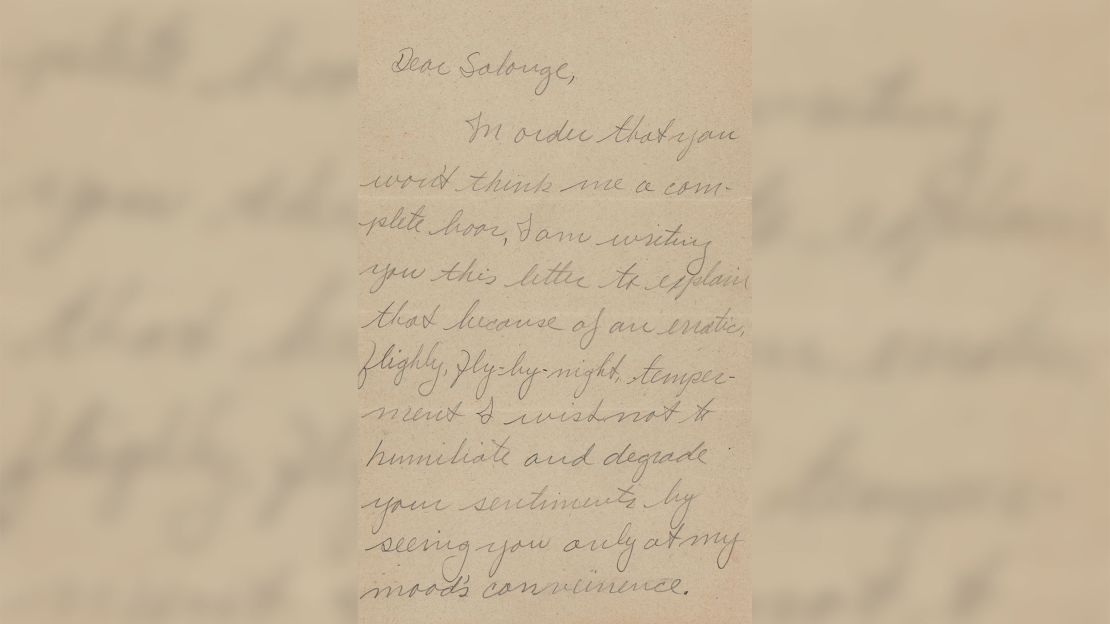 Dear Solonge,
In order that you
won't think me a com-
plete boor, I am writing
you this letter to explain
that because of an erratic,
flighty, fly-by-night, temper-
ment I wish not to
humiliate and degrade
your sentiments by
seeing you only at my
mood's conveinence.